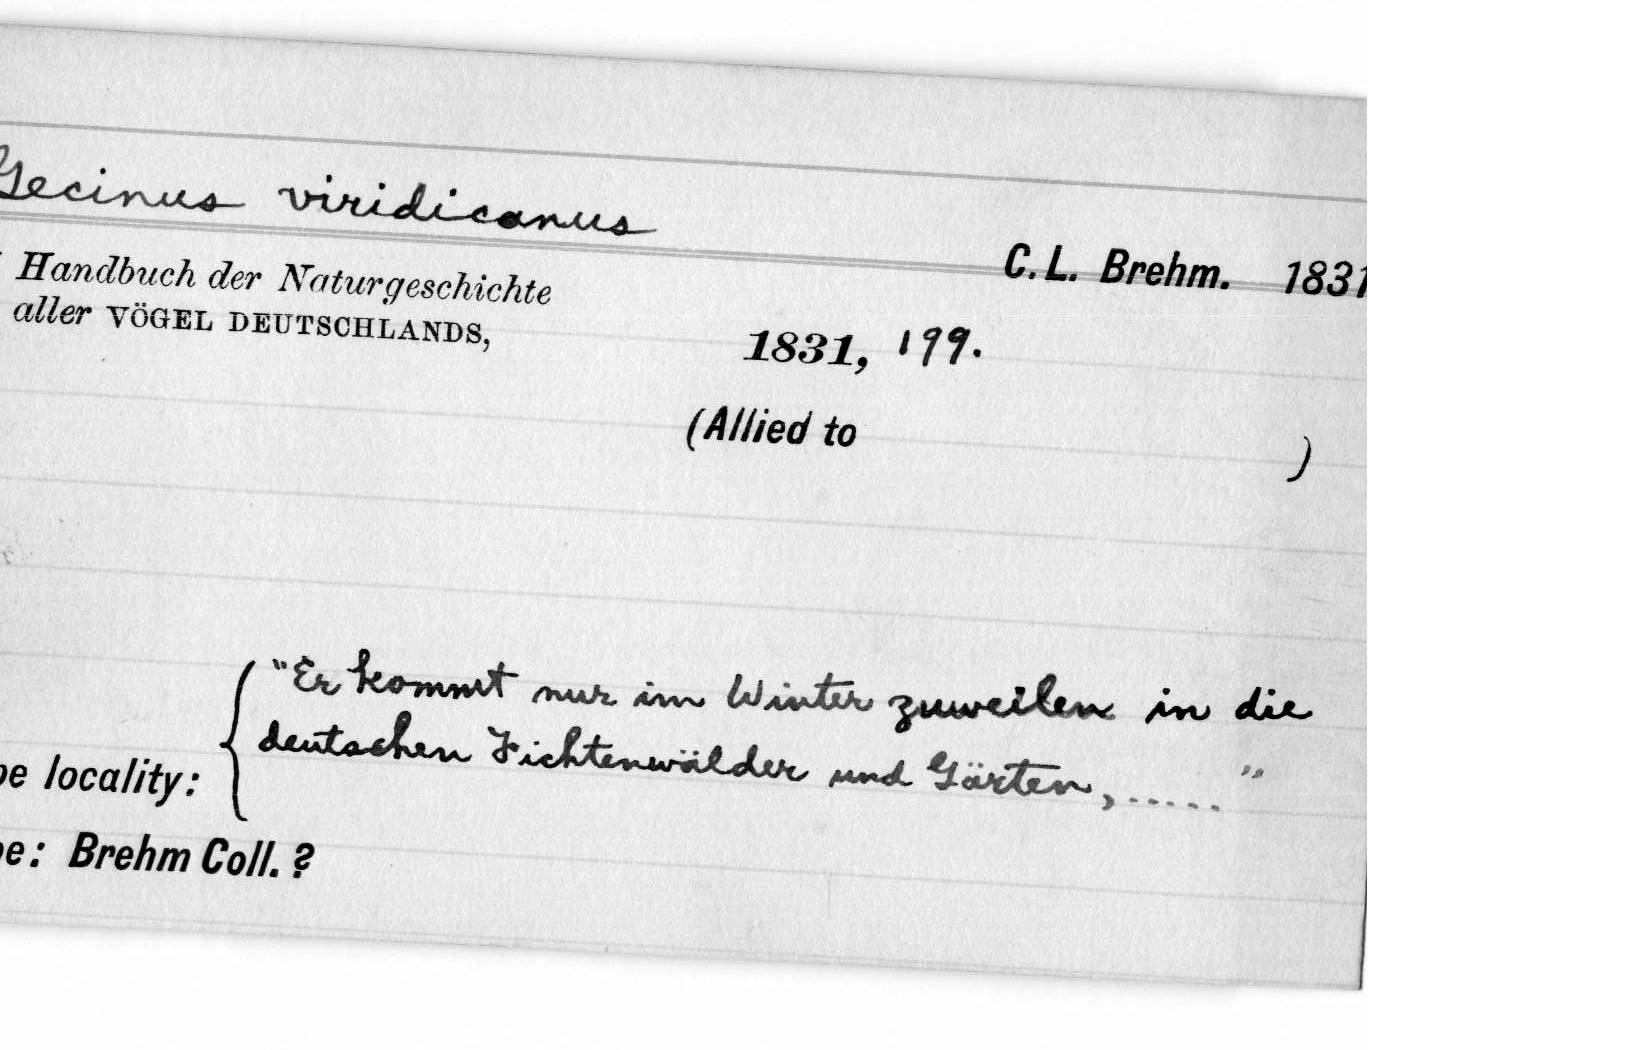 Gecinus viridicanus
C.L. Brehm. 1831
Handbuch der Naturgeschichte
aller VÖGEL DEUTSCHLANDS,
1831, 199.
(Allied to )
"Er kommt nur im Winter zuweilen in die
deutschen Fichtenwälder und Gärten,....."
pe locality:
pe: Brehm Coll. ?